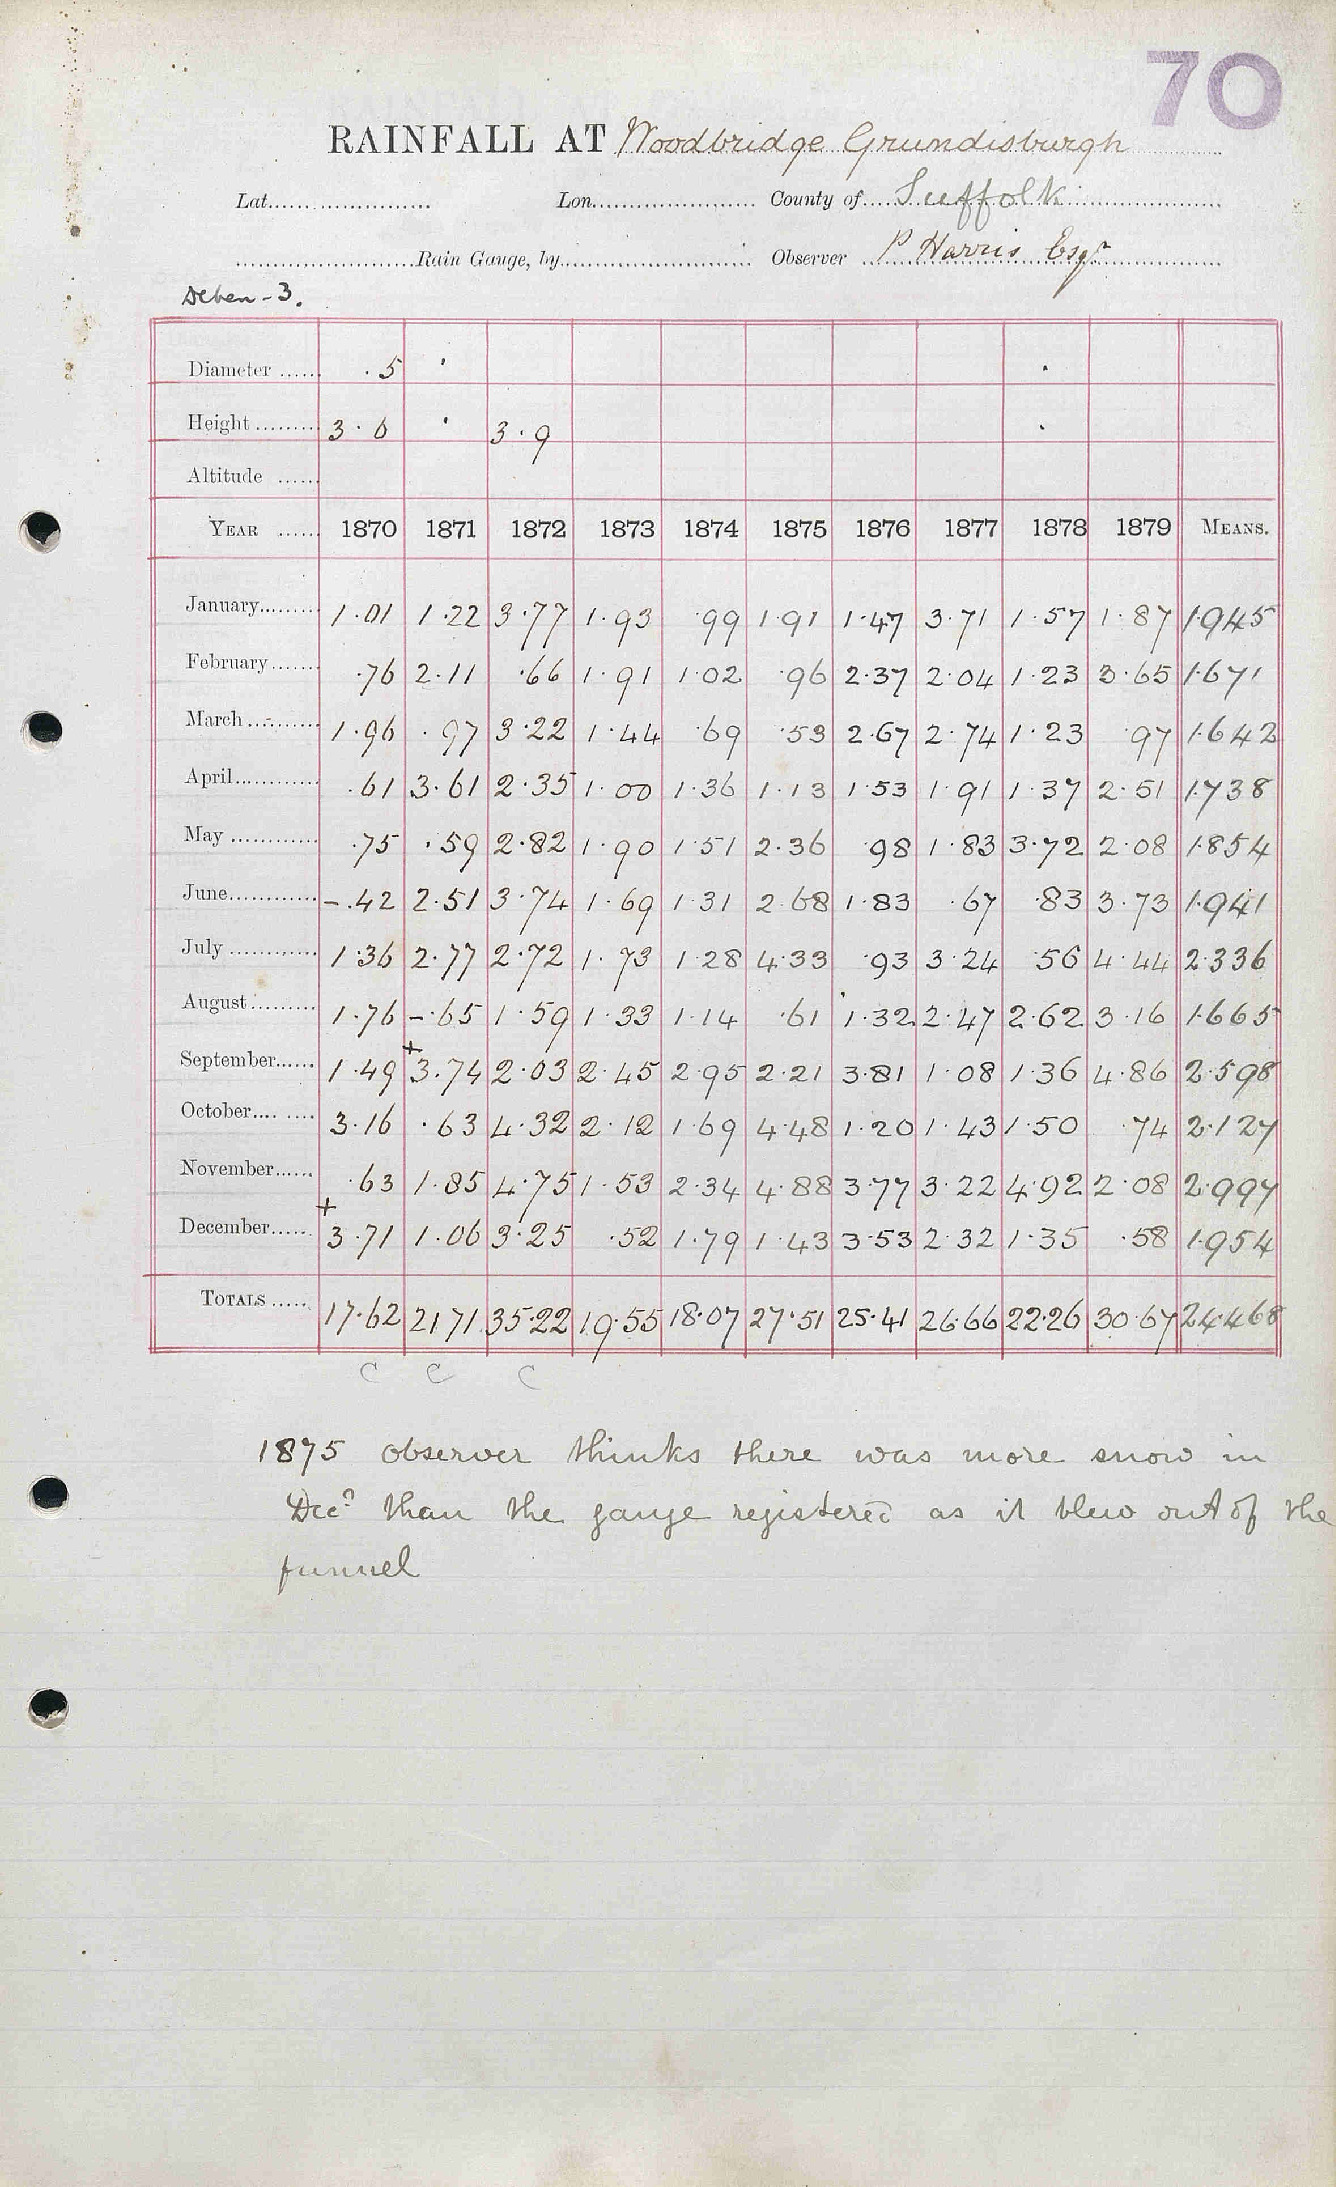 70
RAINFALL AT Woodbridge Grundisburgh
Lat. Lon. County of Suffolk
Rain Gauge, by Observer P Harris Esqr
Deben - 3.
Diameter 5
Height 3.6 3.9
Altitude
YEAR 1870 1871 1872 1873 1874 1875 1876 1877 1878 1879 MEANS.
January 1.01 1.22 3.77 1.93 .99 1.91 1.47 3.71 1.57 1.87 1.945
February .76 2.11 .66 1.91 1.02 .96 2.37 2.04 1.23 3.65 1.671
March 1.96 .97 3.22 1.44 .69 .53 2.67 2.74 1.23 .97 1.642
April .61 3.61 2.35 1.00 1.36 1.13 1.53 1.91 1.37 2.51 1.738
May .75 .59 2.82 1.90 1.51 2.36 .98 1.83 3.72 2.08 1.854
June -.42 2.51 3.74 1.69 1.31 2.68 1.83 .67 .83 3.73 1.941
July 1.36 2.77 2.72 1.73 1.28 4.33 .93 3.24 .56 4.44 2.336
August 1.76 -.65 1.59 1.33 1.14 .61 1.32 2.47 2.62 3.16 1.665
September 1.49 +3.74 2.03 2.45 2.95 2.21 3.81 1.08 1.36 4.86 2.598
October 3.16 .63 4.32 2.12 1.69 4.48 1.20 1.43 1.50 .74 2.127
November .63 1.85 4.75 1.53 2.34 4.88 3.77 3.22 4.92 2.08 2.997
December +3.71 1.06 3.25 .52 1.79 1.43 3.53 2.32 1.35 .58 1.954
TOTALS 17.62 21 71 35.22 19.55 18.07 27.51 25.41 26.66 22.26 30.67 24.468
C C C
1875 observer thinks there was more snow in
Decr than the gauge registered as it blew out of the
funnel